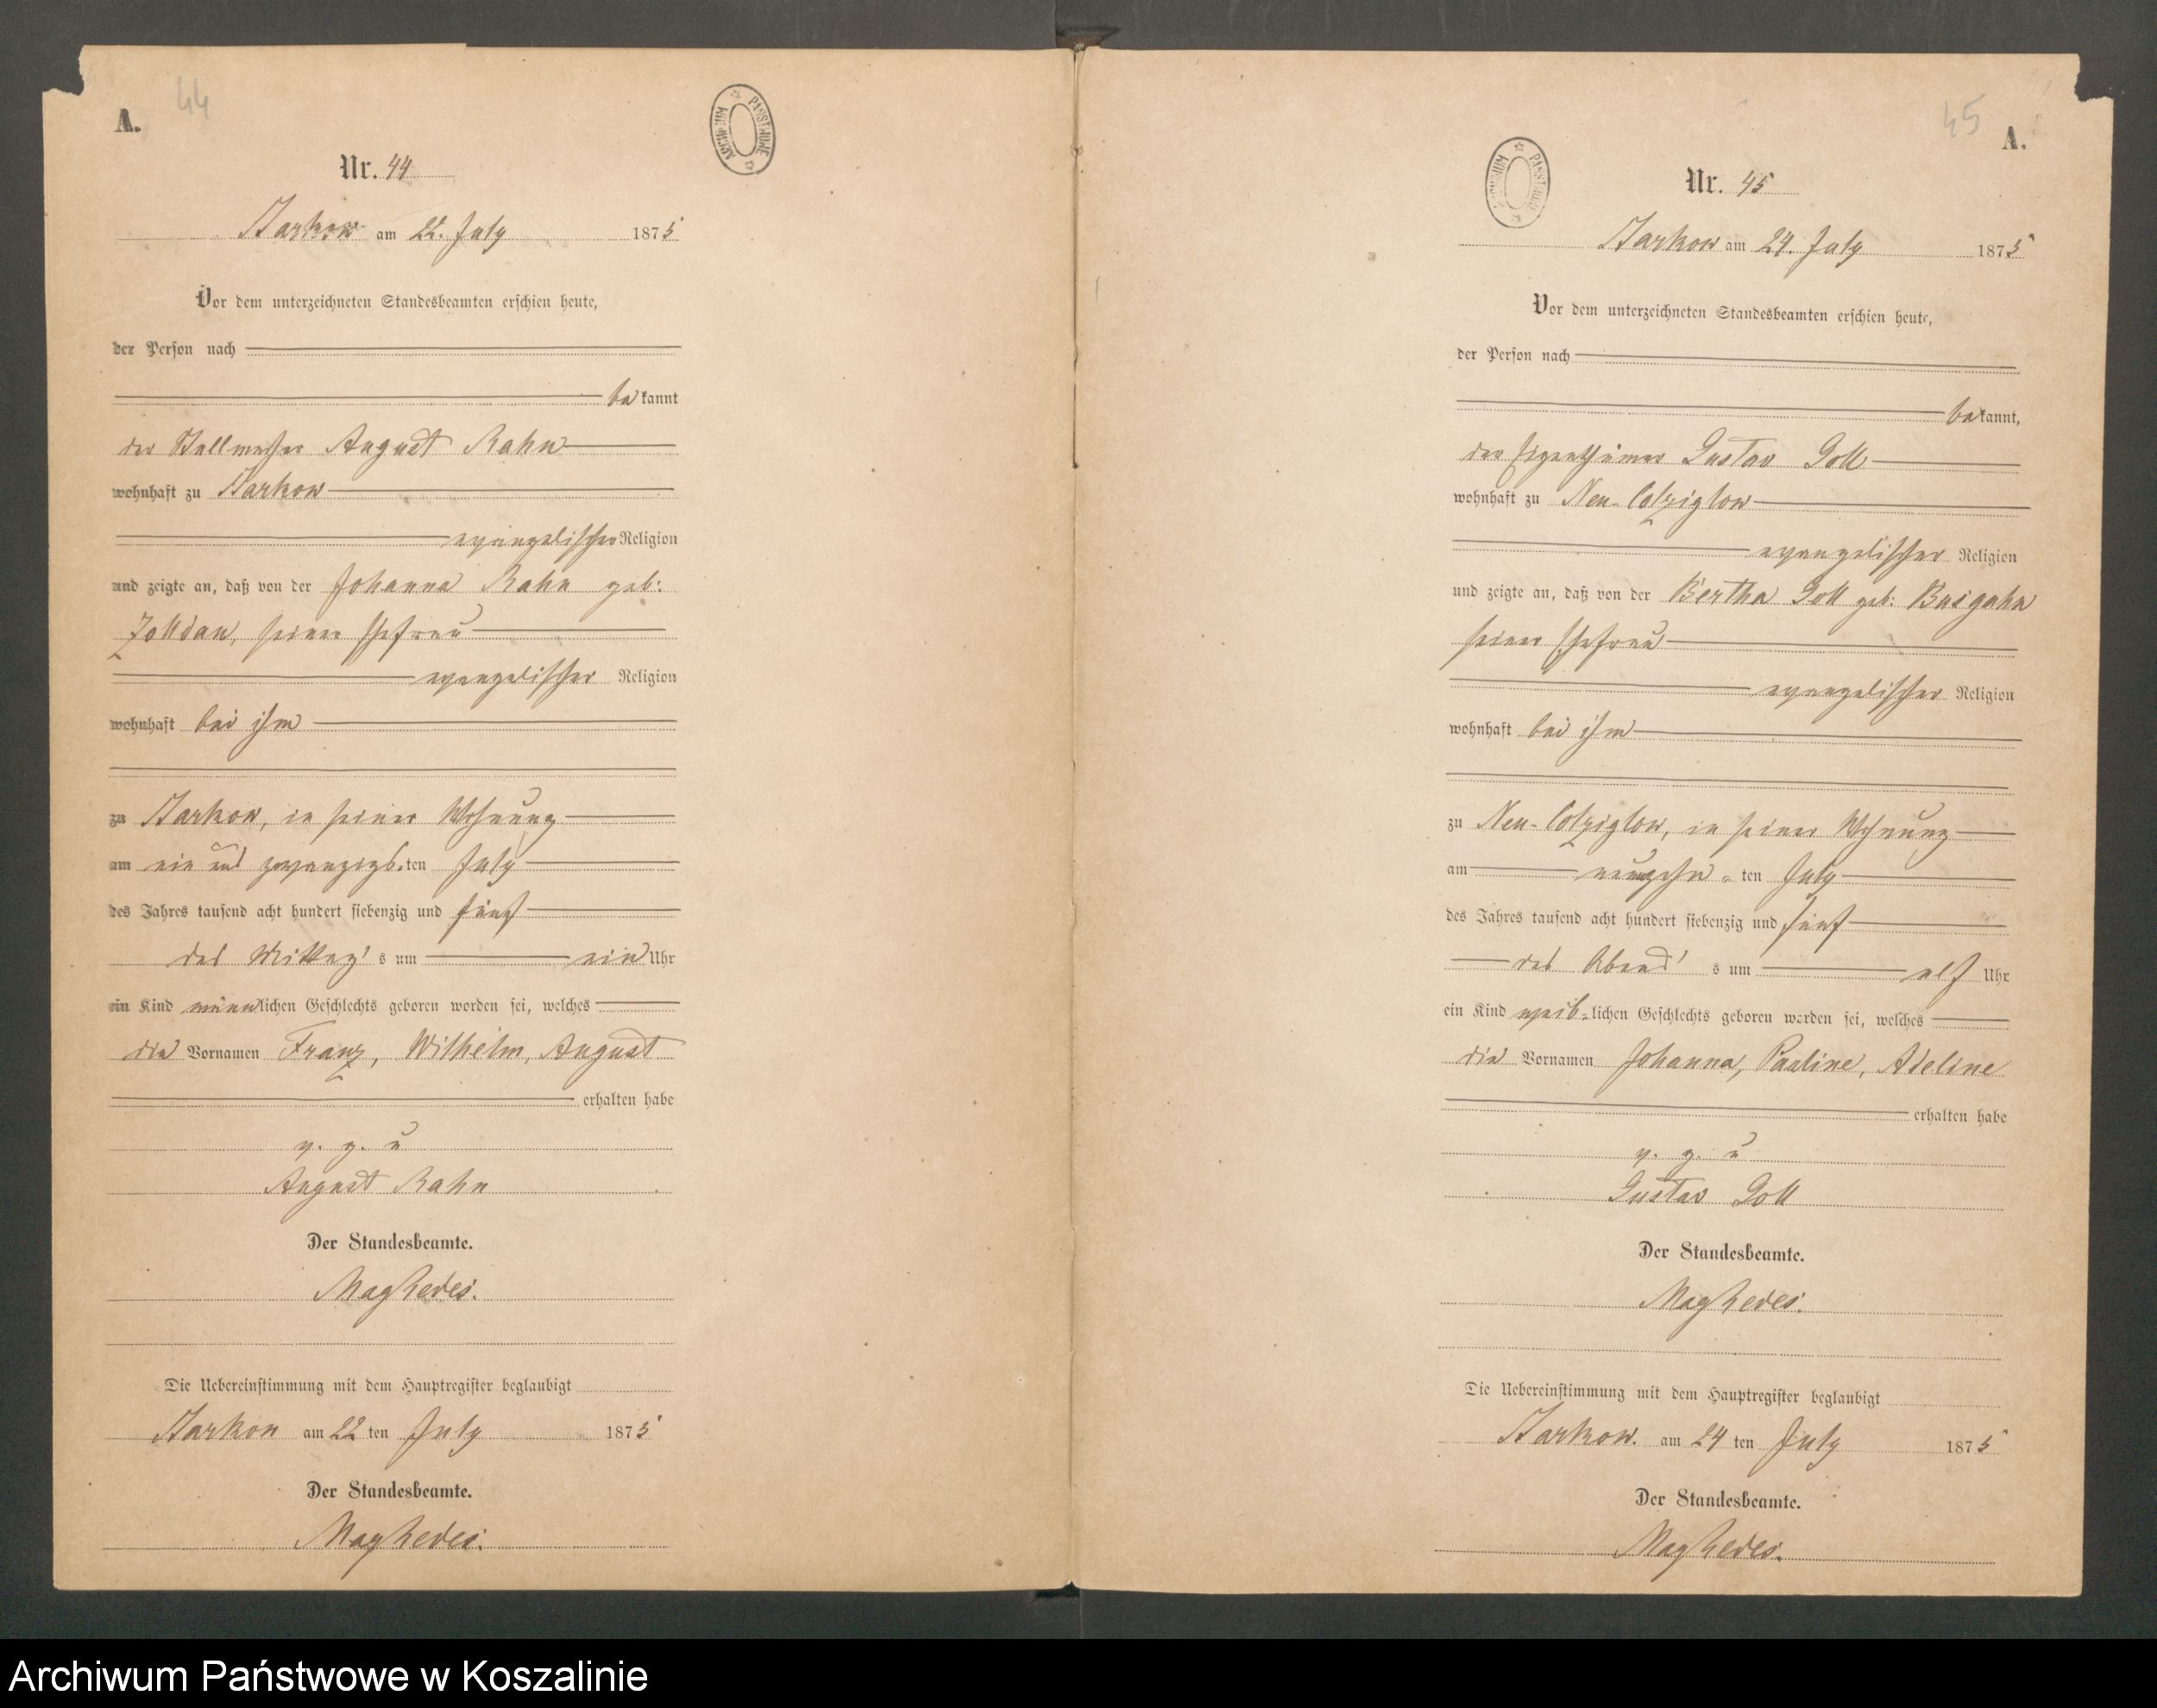 A. 44
ARCHIWUM PAŃSTWOWE
Nr. 44
Starkow am 22. July 1875
Vor dem unterzeichneten Standesbeamten erschien heute,
der Person nach
bekannt
der August Rahn
wohnhaft zu Starkow
evangelischer Religion
und zeigte an, daß von der Johanna Rahn geb:
Zolldan, seiner Ehefrau
evangelischer Religion
wohnhaft bei ihm
zu Starkow, in seiner Wohnung
am ein und zwanzigs.ten July
des Jahres tausend acht hundert siebenzig und fünf
des Mittag's um ein Uhr
ein Kind männlichen Geschlechts geboren worden sei, welches
die Vornamen Franz, Wilhelm, August
erhalten habe
v. g. u
August Rahn
Der Standesbeamte.
Die Uebereinstimmung mit dem Hauptregister beglaubigt
Starkow am 22 ten July 1875
Der Standesbeamte.
45 A.
ARCHIWUM PAŃSTWOWE
Nr. 45
Starkow am 24. July 1875
Vor dem unterzeichneten Standesbeamten erschien heute,
der Person nach
bekannt,
der Eigenthümer Gustav Goll
wohnhaft zu Neu-Colziglow
evangelischer Religion
und zeigte an, daß von der Bertha Goll geb: Busgahn
seiner Ehefrau
evangelischer Religion
wohnhaft bei ihm
zu Neu-Colziglow, in seiner Wohnung
am neunzehn-ten July
des Jahres tausend acht hundert siebenzig und fünf
des Abend's um elf Uhr
ein Kind weib-lichen Geschlechts geboren worden sei, welches
die Vornamen Johanna, Pauline, Adeline
erhalten habe
v. g. u
Gustav Goll
Der Standesbeamte.
Die Uebereinstimmung mit dem Hauptregister beglaubigt
Starkow. am 24 ten July 1875
Der Standesbeamte.
Archiwum Państwowe w Koszalinie